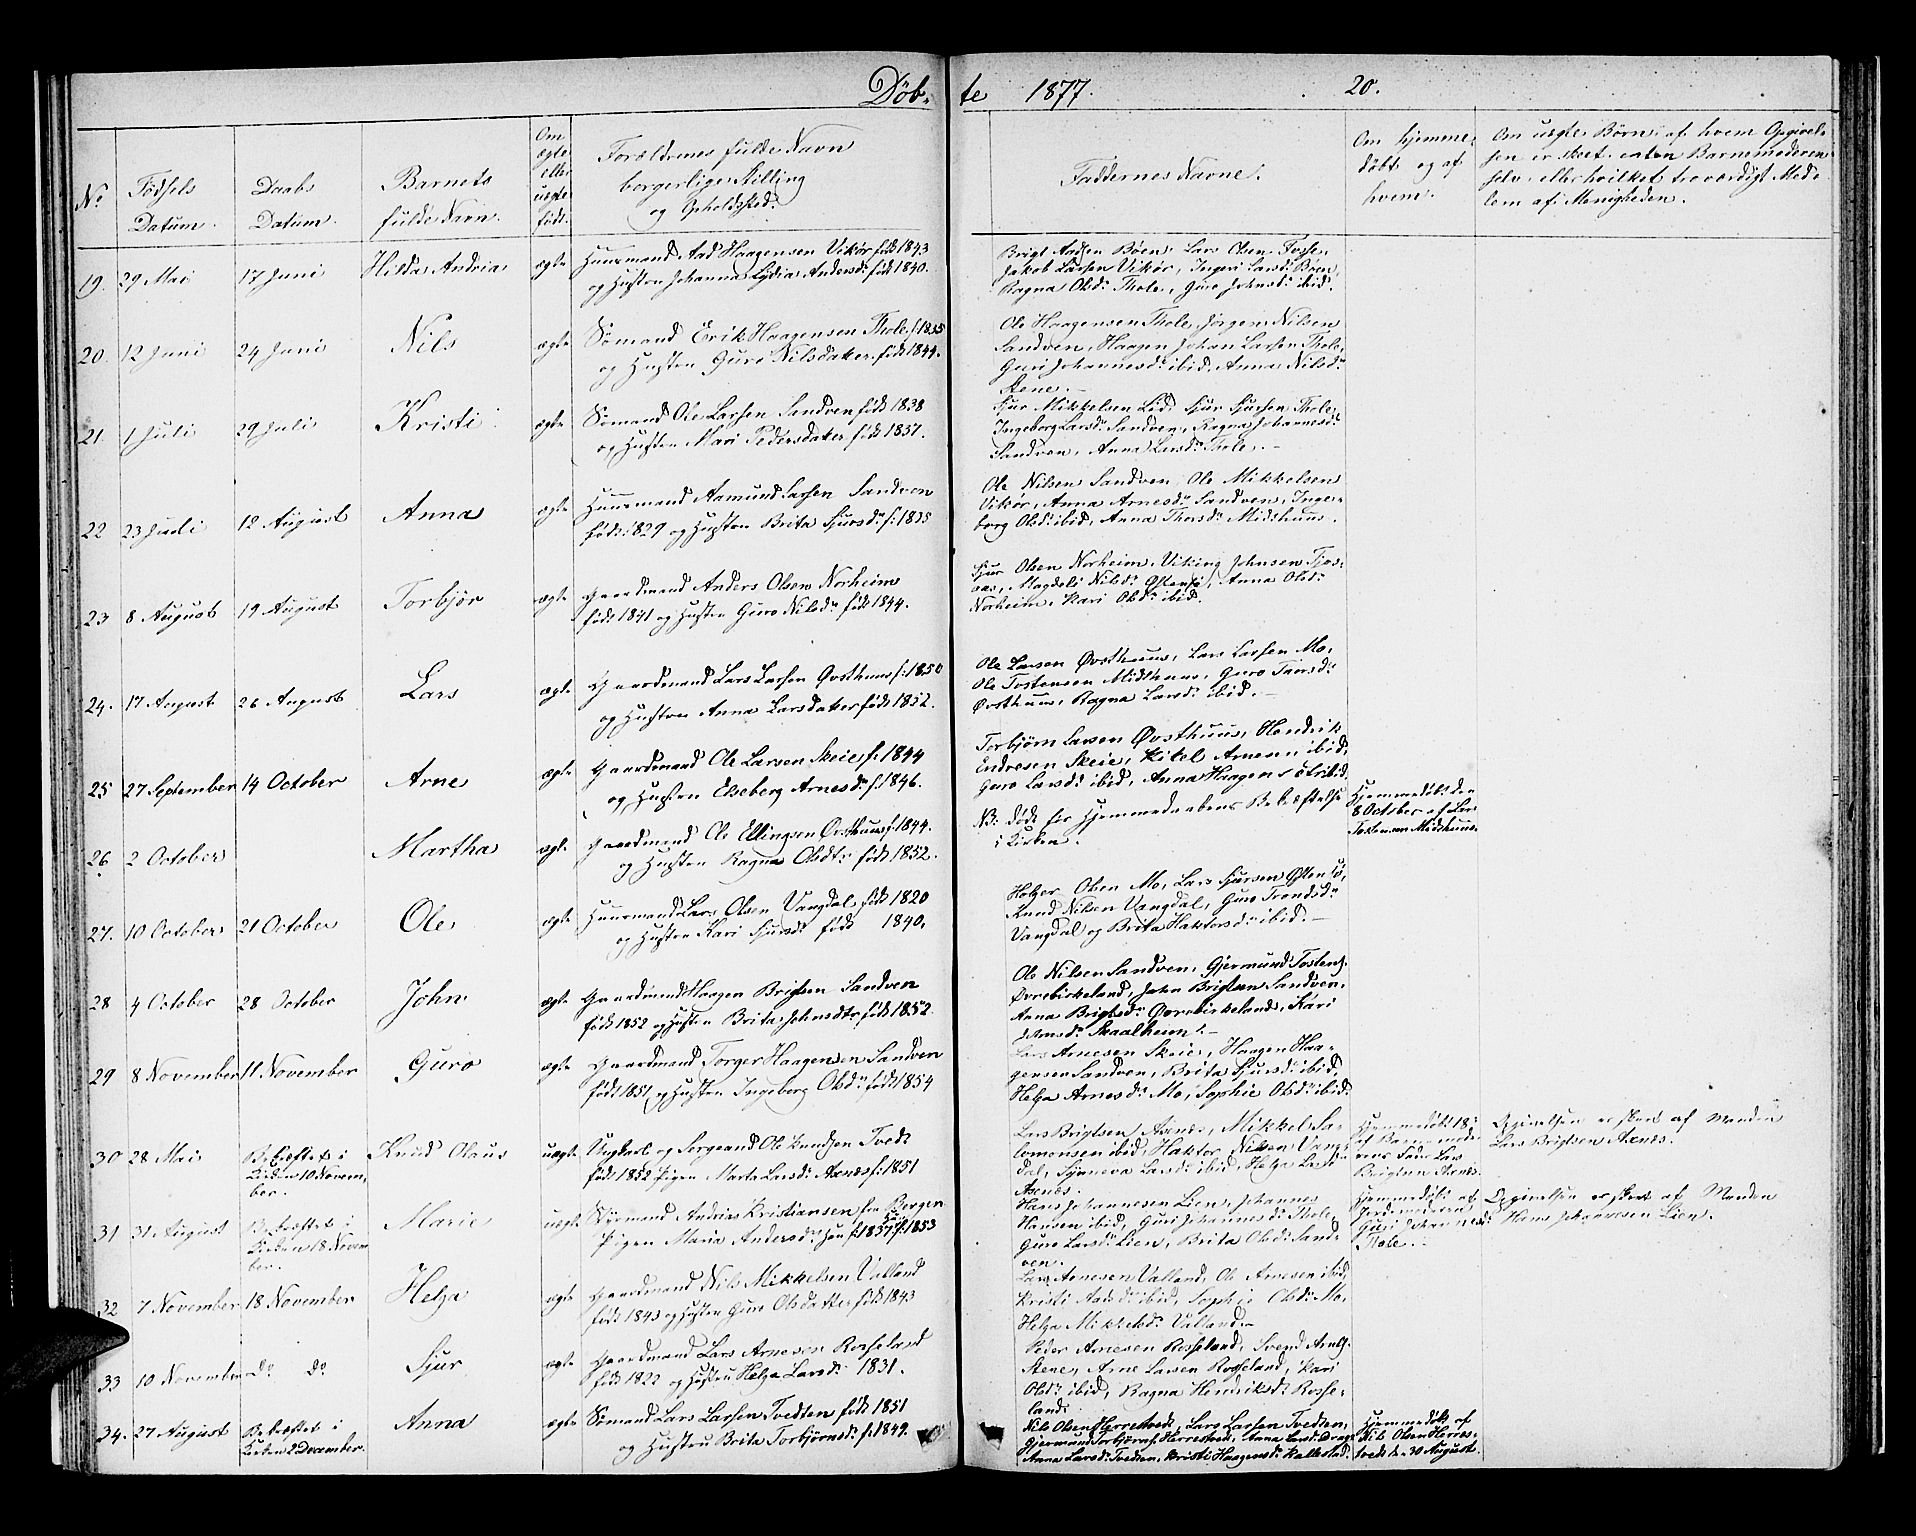 Döbte 1877. 20.
No
Födsels Datum.
Daabs Datum.
Barnets fulde Navn.
Om ægte eller uægte født.
Forældrenes fulde Navn borgerlige Stilling og Opholdsted.
Faddernes Navne.
Om hjemmedøbt og af hvem.
Om uægte Børn: af hvem Opgivelsen er skeet enten Barnemoderen selv eller hvilket troværdigt Medlem af Menigheden.
19. 29 Mai 17 Juni Hilda Andria ægte Huusmand Aad Haagensen Vikør født 1843
og Hustru Johanna Lydia Andersdr født 1840.
Brigt Aadsen Bøen, Lars Olsen Fosse,
Jakob Larsen Vikør, Ingeri Larsdr Bøen,
Ragna Olsdr Thole, Guro Johnsdr ibid.
20. 12 Juni 24 Juni Nils ægte Sømand Erik Haagensen Thole f. 1835
og Hustru Guro Nilsdatter født 1844.
Ole Haagensen Thole, Jörgen Nilsen
Sandven, Haagen Johan Larsen Thole,
Guri Johannesdr ibid, Anna Nilsdr
Stene.
21 1 Juli 29 Juli Kristi ægte Sømand Ole Larsen Sandven født 1838
og Hustru Mari Pedersdatter født 1857.
Sjur Mikkelsen Lid, Sjur Sjursen Thole,
Ingeborg Larsdr Sandven, Ragna Johannesdr
Sandven, Anna Larsdr Thole.
22 23 Juli 12 August Anna ægte Huusmand Aamund Larsen Sandven
født 1829 og Hustru Brita Sjursdr f. 1835
Ole Nilsen Sandven, Ole Mikkelsen
Vikør, Anna Arnesdr Sandven, Inge-
borg Olsdr ibid, Anna Thorsdr Midthuus.
23 8 August 19 August Torbjør ægte Gaardmand Anders Olsen Norheim
født 1841 og Hustru Guro Nilsdr født 1844.
Sjur Olsen Norheim, Viking Johnsen
Magdeli Nilsdr Østensø, Anna Olsdr
Norheim, Kari Olsdr ibid.
24. 17 August 26 August Lars ægte Gaardmand Lars Larsen Øvsthuus f. 1850
og Hustru Anna Larsdatter født 1852.
Ole Larsen Øvsthuus, Lars Larsen Mo,
Ole Tostensen Midthuus, Guro
Øvsthuus, Ragna Larsdr ibid.
25 27 September 14 October Arne ægte Gaardmand Ole Larsen Skeie f. 1844
og Hustru Elseberg Arnesdr f. 1846.
Torbjörn Larsen Øvsthuus, Hendrik
Endresen Skeie, Kitel Arnesen ibid,
Guro Larsdr ibid, Anna Haagensdtr ibid.
26. 2 October Martha ægte Gaardmand Ole Ellingsen Øvsthuus f. 1844.
og Hustru Ragna Olsdtr født 1852.
NB. død før Hjemmedaabens Bekræftelse
i Kirken.
Hjemmedøbt den
8 October af Lars
Tostensen Midthuus.
27. 10 October 21 October Ole ægte Huusmand Lars Olsen Vangdal født 1820
og Hustru Kari Sjursdr født 1840.
Holger Olsen Mo, Lars Sjursen Østensø,
Knud Nilsen Vangdal, Guro Trondsdr
Vangdal og Brita Haktorsdr ibid.
28 4 October 28 October John ægte Gaardmand Haagen Brigtsen Sandven
født 1852 og Hustru Brita Johnsdtr født 1852.
Ole Nilsen Sandven, Gjermund Tostens.
Øvrebirkeland, John Brigtsen Sandven,
Anna Brigtsdr Øvrebirkeland, Kari
Skaalheim.
29 8 November 11 November Guro ægte Gaardmand Torger Haagensen Sandven
født 1851 og Hustru Ingeborg Olsdr født 1854
Lars Arnesen Skeie, Haagen Haa-
gensen Sandven, Brita Sjursdr ibid,
Helga Arnesdr Mo, Sophie Olsdr ibid.
30 28 Mai Bekræftet i
Kirken 10 Novem-
ber. Knud Olaus uægte Ungkarl og Sergeand Ole Knudsen Tvedt
født 1852 Pigen Marta Larsdr Axnes f. 1851
Lars Brigtsen Axnes, Mikkel Sa-
lomonsen ibid, Haktor Nilsen Vang-
dal, Synneva Larsdr ibid, Helga Larsdr
Axnes.
Hjemmedøbt
af Barnemode-
rens Fader Lars
Brigtsen Axnes.
Opgivelsen er skeet af Manden
Lars Brigtsen Axnes.
31 31 August Bekræftet i
Kirken 18 Novem-
ber. Marie uægte Styrmand Andrias Kristiansen fra Bergen
Pigen Maria Andersdr han f. 1857 f. 1853
Hans Johannesen Lien, Johannes
Hansen ibid, Guri Johannesdr Thole,
Guro Larsdr Lien, Brita Olsdr Sand-
ven.
Hjemmedøbt af
Jordmoderen
Guri Johannesdr
Thole.
Opgivelsen er skeet af Manden
Hans Johannesen Lien.
32 7 November 18 November Helga ægte Gaardmand Nils Mikkelsen Valland
født 1843 og Hustru Guro Olsdatter født 1843
Lars Arnesen Valland, Ole Arnesen ibid,
Kristi Aadsdr ibid, Sophie Olsdr Mo,
Helga Mikkelsdr Valland.
33 10 November Do Do Sjur ægte Gaardmand Lars Arnesen Rosseland
født 1822 og Hustru Helga Larsdr 1831.
Peder Arnesen Rosseland, Svend Arnes.
Stene, Arne Larsen Rosseland, Kari
Olsdr ibid, Ragna Hendriksdr Rosse-
land.
34. 27 August Bekræftet i
Kirken 2 December. Anna ægte Sømand Lars Larsen Tvedten født 1851
og Hustru Brita Torbjørnsdr f. 1849.
Nils Olsen Herrestvedt, Lars Larsen Tvedten,
Gjermund Torbjørns. Herrestvedt, Anna Larsdr
Anna Larsdr Tvedten, Kristi Haagensdr Kallestad.
Hjemmedøbt af
Nils Olsen Herres-
tvedt den 30 August.